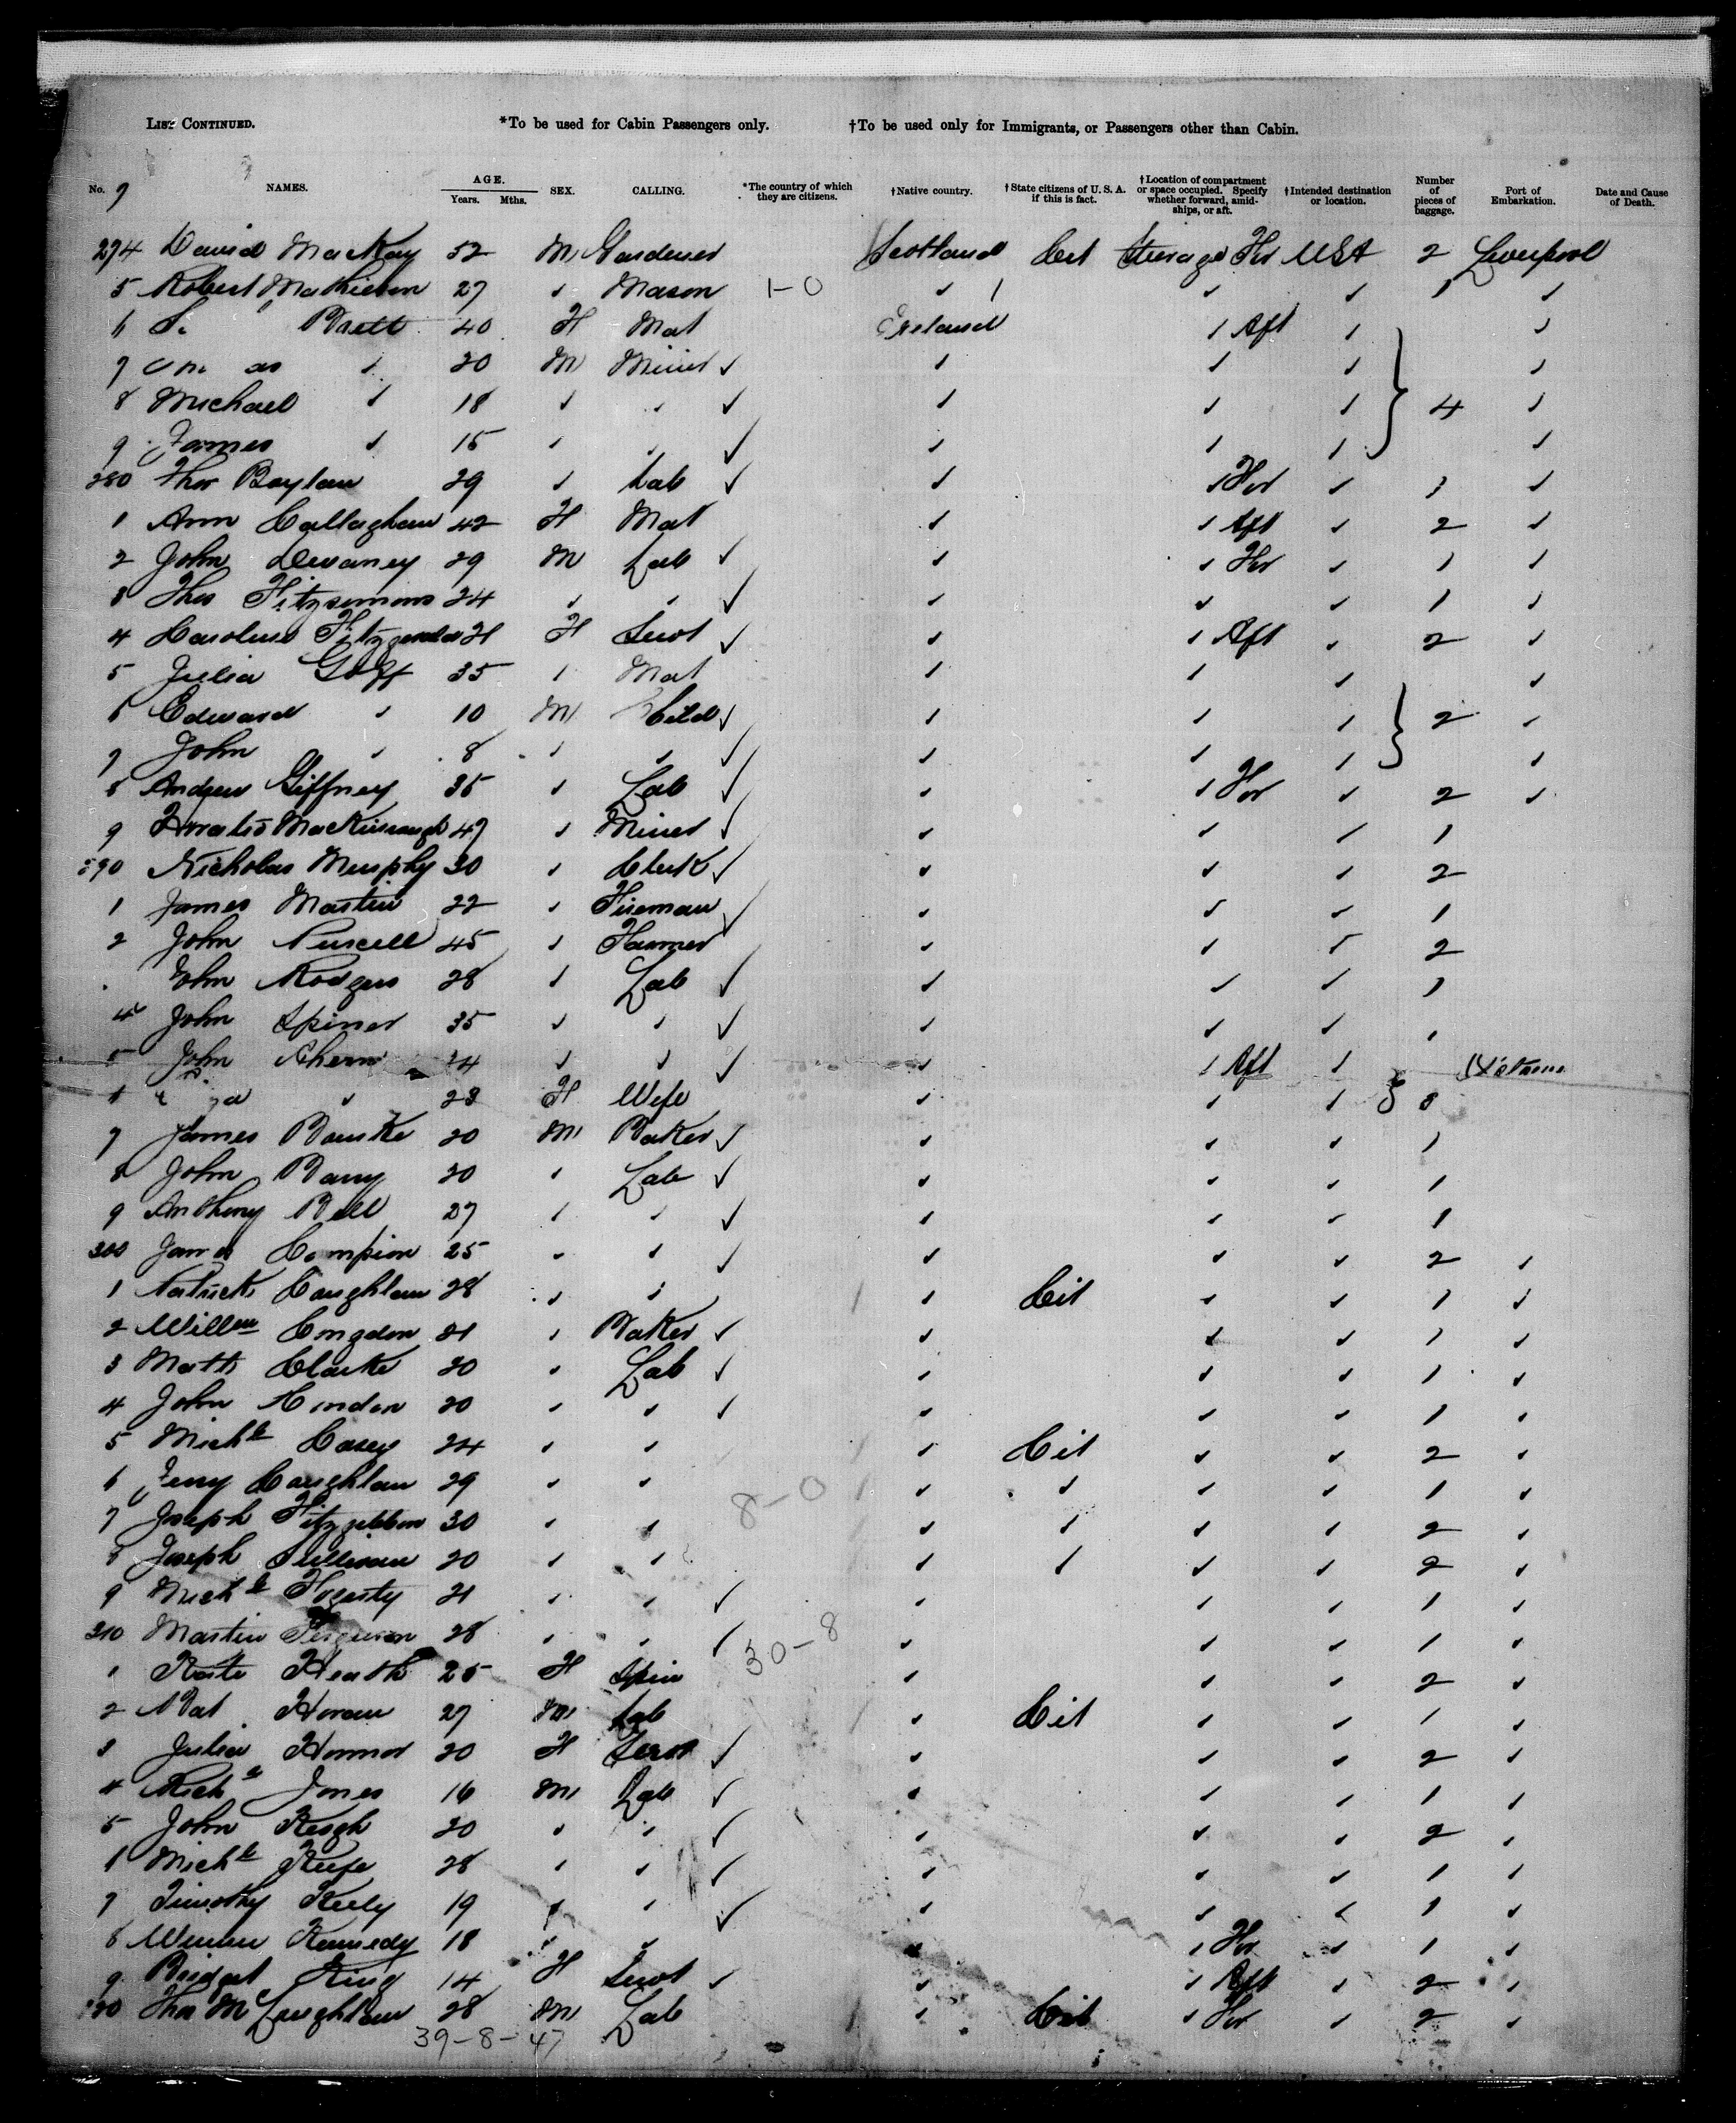 LIST CONTINUED. *To be used for Cabin Passengers only. †To be used only for Immigrants, or Passengers other than Cabin.
No. 7 NAMES. AGE. Years. Mths. SEX. CALLING. *The country of which they are citizens. †Native country. †State citizens of U. S. A. if this is fact. †Location of compartment or space occupied. Specify whether forward, amidships, or aft. †Intended destination or location. Number of pieces of baggage. Port of Embarkation. Date and Cause of Death.
274 David MacKay 52 M Gardener Scotland Cit Steerage For USA 2 Liverpool
5 Robert Mathieson 27 ✓ Mason 1-0 ✓ 1 ✓ ✓ 1 ✓
6 Brett 40 F Mat Ireland ✓ Aft ✓ ✓
7 ✓ 20 M Miner ✓ ✓ ✓ ✓ ✓
8 Michael ✓ 18 ✓ ✓ ✓ ✓ ✓ ✓ 4 ✓
9 James ✓ 15 ✓ ✓ ✓ ✓ ✓ ✓ ✓
280 Thos Boylan 29 ✓ Lab ✓ ✓ ✓ For ✓ 1 ✓
1 Ann Callaghan 42 F Mat ✓ ✓ Aft ✓ 2 ✓
2 John Devaney 29 M Lab ✓ ✓ ✓ For ✓ 1 ✓
3 Thos Fitzsimons 24 ✓ ✓ ✓ ✓ ✓ ✓ 1 ✓
4 Fitzgerald 21 F Servt ✓ ✓ ✓ Aft ✓ 2 ✓
5 Julia Goff 35 ✓ Mat ✓ ✓ ✓ ✓
6 Edward ✓ 10 M Child ✓ ✓ ✓ ✓ 2 ✓
7 John ✓ 8 ✓ ✓ ✓ ✓ ✓ ✓ ✓
8 Andrew Giffney 35 ✓ Lab ✓ ✓ ✓ For ✓ 2 ✓
9 Horatio 47 ✓ Miner ✓ ✓ ✓ ✓ 1
290 Nicholas Murphy 30 ✓ Clerk ✓ ✓ ✓ ✓ 2
1 James Martin 22 ✓ Fireman ✓ ✓ ✓ ✓ 1
2 John Purcell 45 ✓ Farmer ✓ ✓ ✓ 2
John Rodgers 28 ✓ Lab ✓ ✓ ✓ ✓ 1
4 John Spiner 35 ✓ ✓ ✓ ✓ ✓ ✓ 1
5 John Ahern 24 ✓ ✓ ✓ ✓ ✓ Aft ✓
6 ✓ 23 F Wife ✓ ✓ ✓ 3
7 James Bourke 20 M Baker ✓ ✓ ✓ ✓ 1
8 John Barry 20 ✓ Lab ✓ ✓ ✓ ✓ 1
9 Anthony Bell 27 ✓ ✓ ✓ ✓ ✓ ✓ 1
300 James Campion 25 ✓ ✓ ✓ ✓ ✓ ✓ 2 ✓
1 Patrick Coughlan 28 ✓ ✓ 1 ✓ Cit ✓ ✓ 1 ✓
2 Willm Congdon 21 ✓ Baker ✓ ✓ ✓ ✓ 1 ✓
3 Matt Clarke 20 ✓ Lab ✓ ✓ ✓ ✓ 1 ✓
4 John Condon 20 ✓ ✓ ✓ ✓ ✓ ✓ 1 ✓
5 Michl Casey 24 ✓ ✓ 1 ✓ Cit ✓ ✓ 2 ✓
6 Jerry Coughlan 29 ✓ ✓ 8-0 1 ✓ ✓ ✓ ✓ 1 ✓
7 Joseph Fitzgibbon 30 ✓ ✓ 1 ✓ ✓ ✓ ✓ 2 ✓
8 Joseph Sullivan 20 ✓ ✓ 1 ✓ ✓ ✓ ✓ 2 ✓
9 Michl Fogarty 21 ✓ ✓ ✓ ✓ ✓ ✓ 1 ✓
310 Martin Ferguson 28 ✓ ✓ ✓ 30-8 ✓ ✓ ✓ 1 ✓
1 Kate Heath 25 F Spin ✓ ✓ ✓ 2 ✓
2 Pat Horan 27 M Lab 1 ✓ Cit ✓ ✓ 1 ✓
3 Julia 20 F Servt ✓ ✓ ✓ ✓ 2 ✓
4 Jones 16 M Lab ✓ ✓ ✓ ✓ 1 ✓
5 John Keogh 20 ✓ ✓ ✓ ✓ ✓ ✓ 2 ✓
6 Michl Keefe 28 ✓ ✓ ✓ ✓ ✓ ✓ 1 ✓
7 Timothy Keely 19 ✓ ✓ ✓ ✓ ✓ ✓ 1 ✓
8 Kennedy 18 ✓ ✓ ✓ ✓ For ✓ 1 ✓
9 Bridget King 14 F Servt ✓ ✓ ✓ Aft ✓ 2 ✓
320 Thos McLaughlan 28 M Lab 1 ✓ Cit ✓ For ✓ 2 ✓
39-8-47